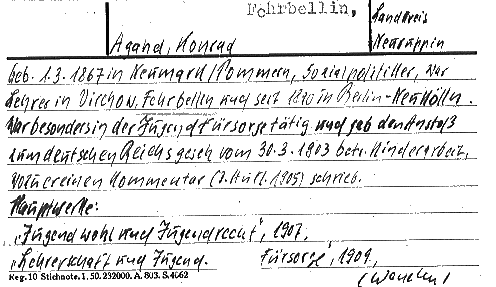 Fehrbellin,
Landkreis
Neuruppin
Agahd, Konrad
geb. 1.3.1867 in Neumark/Pommern, Sozialpolitiker, war
Lehrer in Virchow, Fehrbellin und seit 1890 in Berlin-Neukölln.
War besonders in der Jugendfürsorge tätig und gab den Anstoß
zum deutschen Reichsgesetz vom 30.3.1903 betr. Kinderarbeit,
wozu er einen Kommentar (3. Aufl. 1905) schrieb.
Hauptwerke:
„Jugendwohl und Jugendrecht", 1907.
„Lehrerschaft und Jugend. Fürsorge", 1909,
Reg. 10 Stichnote. 1. 50. 232000. A. 803. S. 4062